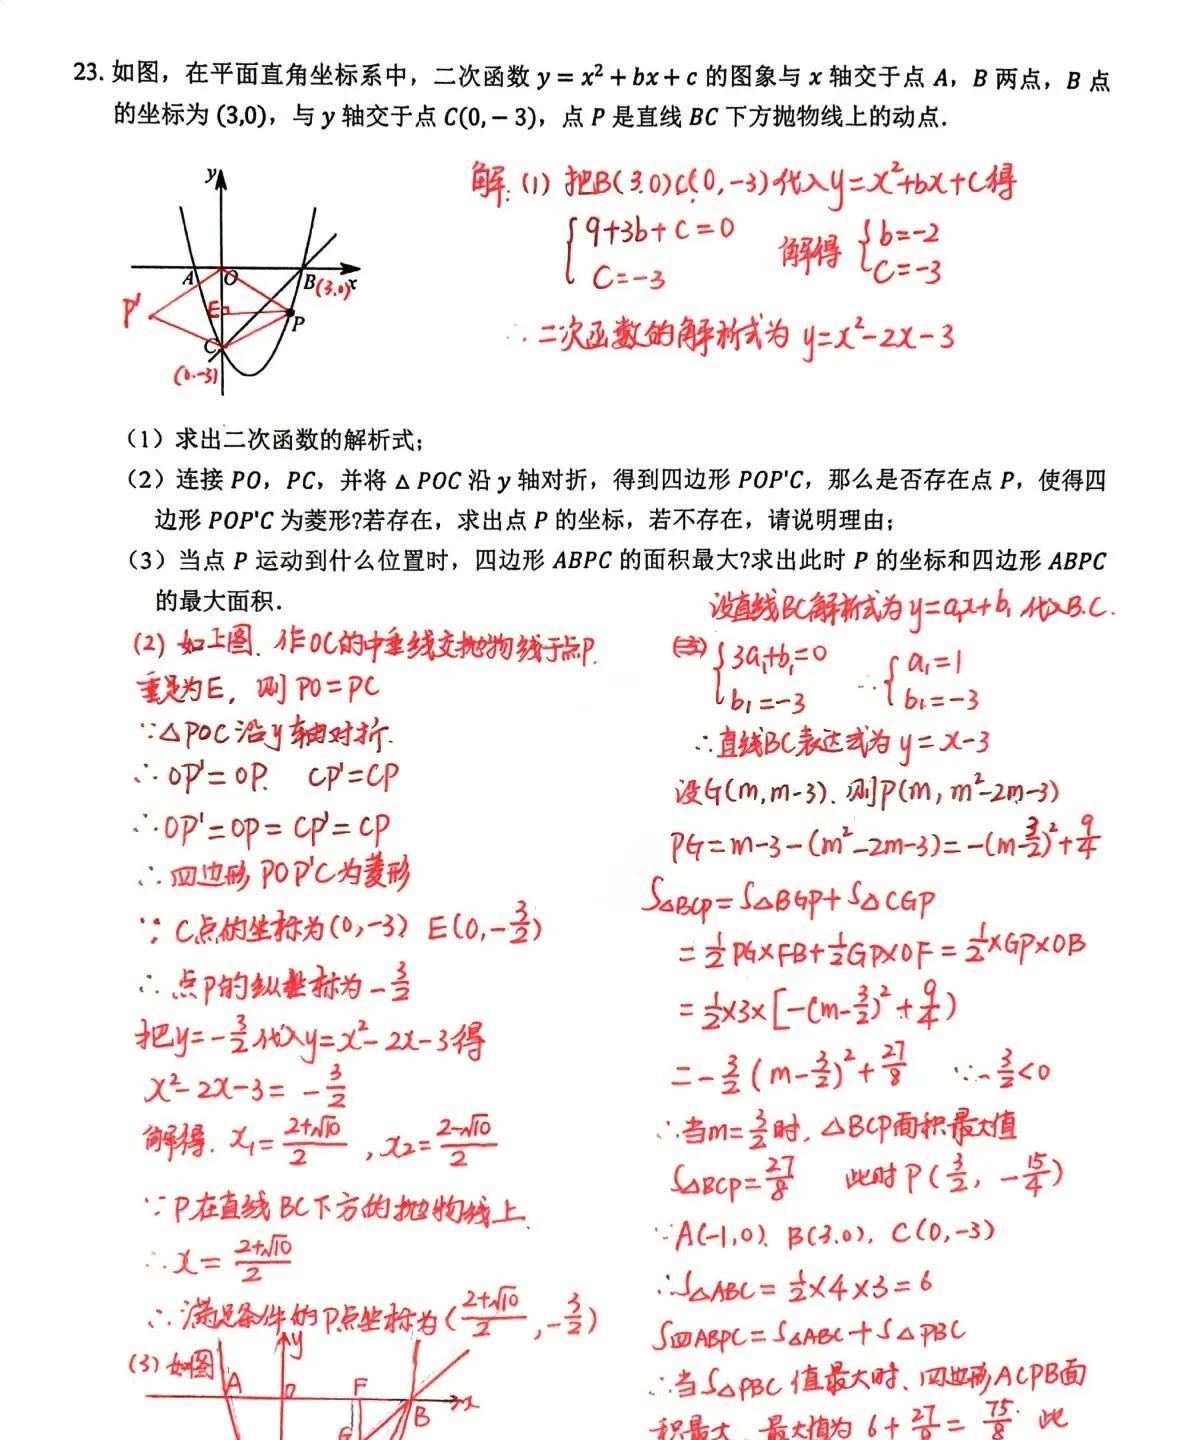 23. 如图，在平面直角坐标系中，二次函数 y = x² + bx + c 的图象与 x 轴交于点 A，B 两点，B 点
的坐标为 (3,0)，与 y 轴交于点 C(0, − 3)，点 P 是直线 BC 下方抛物线上的动点．
y
A
O
B(3.0)
x
P'
E
P
C
(0.-3)
解：(1) 把B(3.0)C(0,-3)代入y=x²+bx+C得
{9+3b+C=0
C=-3
解得 {b=-2
C=-3
∴二次函数的解析式为 y=x²-2x-3
（1）求出二次函数的解析式；
（2）连接 PO，PC，并将 △ POC 沿 y 轴对折，得到四边形 POP'C，那么是否存在点 P，使得四
边形 POP'C 为菱形?若存在，求出点 P 的坐标，若不存在，请说明理由；
（3）当点 P 运动到什么位置时，四边形 ABPC 的面积最大?求出此时 P 的坐标和四边形 ABPC
的最大面积．
(2) 如上图．作OC的中垂线交抛物线于点P.
垂足为E，则 PO=PC
∵△POC沿y轴对折.
∴OP'=OP. CP'=CP
∴OP'=OP=CP'=CP
∴四边形POP'C为菱形
∵C点的坐标为(0,-3) E(0,-3/2)
∴点P的纵坐标为-3/2
把y=-3/2代入y=x²-2x-3得
x²-2x-3=-3/2
解得. x₁=(2+√10)/2 , x₂=(2-√10)/2
∵P在直线BC下方的抛物线上
∴x=(2+√10)/2
∴满足条件的P点坐标为((2+√10)/2,-3/2)
(3) 如图
y
A
O
F
B
x
G
设直线BC解析式为y=a₁x+b₁ 代入B.C.
{3a₁+b₁=0
b₁=-3
∴{a₁=1
b₁=-3
∴直线BC表达式为y=x-3
设G(m,m-3)．则P(m,m²-2m-3)
PG=m-3-(m²-2m-3)=-(m-3/2)²+9/4
S△BCP=S△BGP+S△CGP
=1/2PG×FB+1/2GP×OF=1/2×GP×OB
=1/2×3×[-(m-3/2)²+9/4)
=-3/2(m-3/2)²+27/8 ∵-3/2<0
∴当m=3/2时，△BCP面积最大值
S△BCP=27/8 此时P(3/2,-15/4)
∵A(-1,0)、B(3.0)，C(0,-3)
∴S△ABC=1/2×4×3=6
S四ABPC=S△ABC+S△PBC
∴当S△PBC值最大时、四边形ACPB面
积最大．最大值为6+27/8=75/8. 此